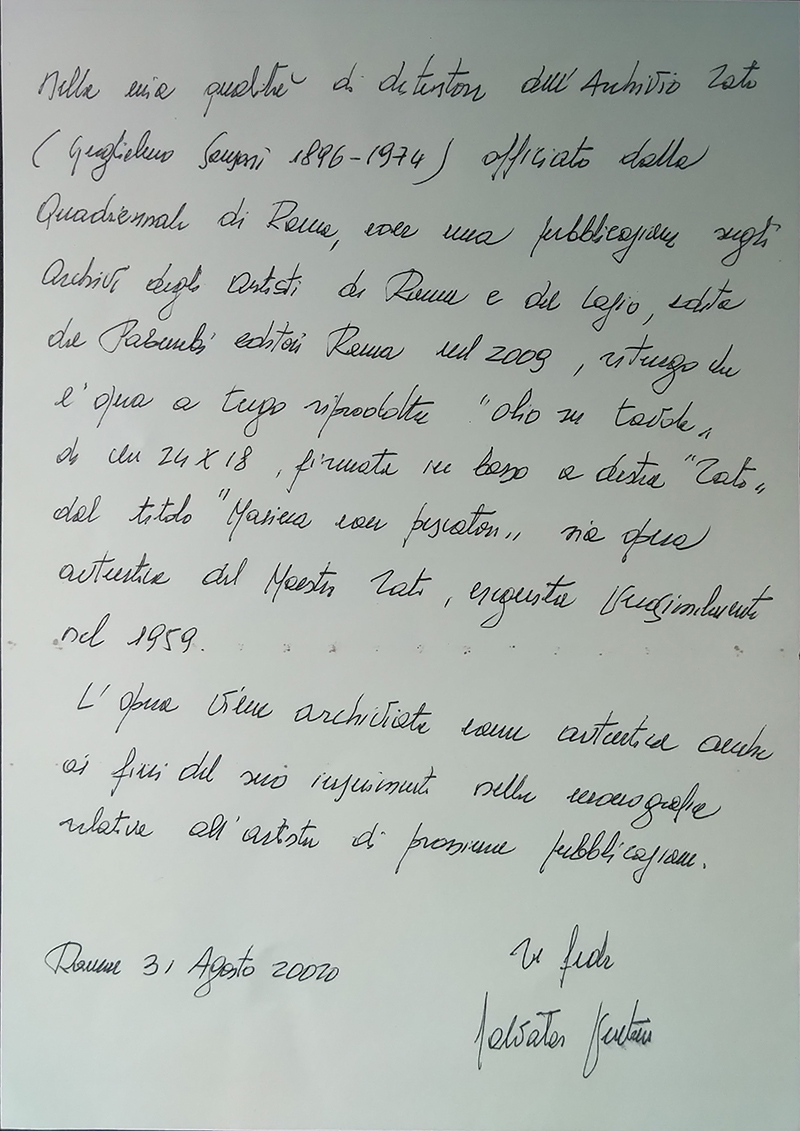 Nella mia qualità di detentore dell'Archivio Tato
(Guglielmo Sansoni 1896-1974) officiato dalla
Quadriennale di Roma, con una pubblicazione sugli
Archivi degli artisti di Roma e del Lazio, edita
da Palombi editori Roma nel 2009, ritengo che
l'opera a tergo riprodotta "olio su tavola"
di cm 24x18, firmata in basso a destra "Tato"
dal titolo "Marina con pescatori" sia opera
autentica del Maestro Tato, eseguita verosimilmente
nel 1959.
L'opera viene archiviata come autentica anche
ai fini del suo inserimento nella monografia
relativa all'artista di prossima pubblicazione.
Roma 31 Agosto 20020
In fede
Salvatore